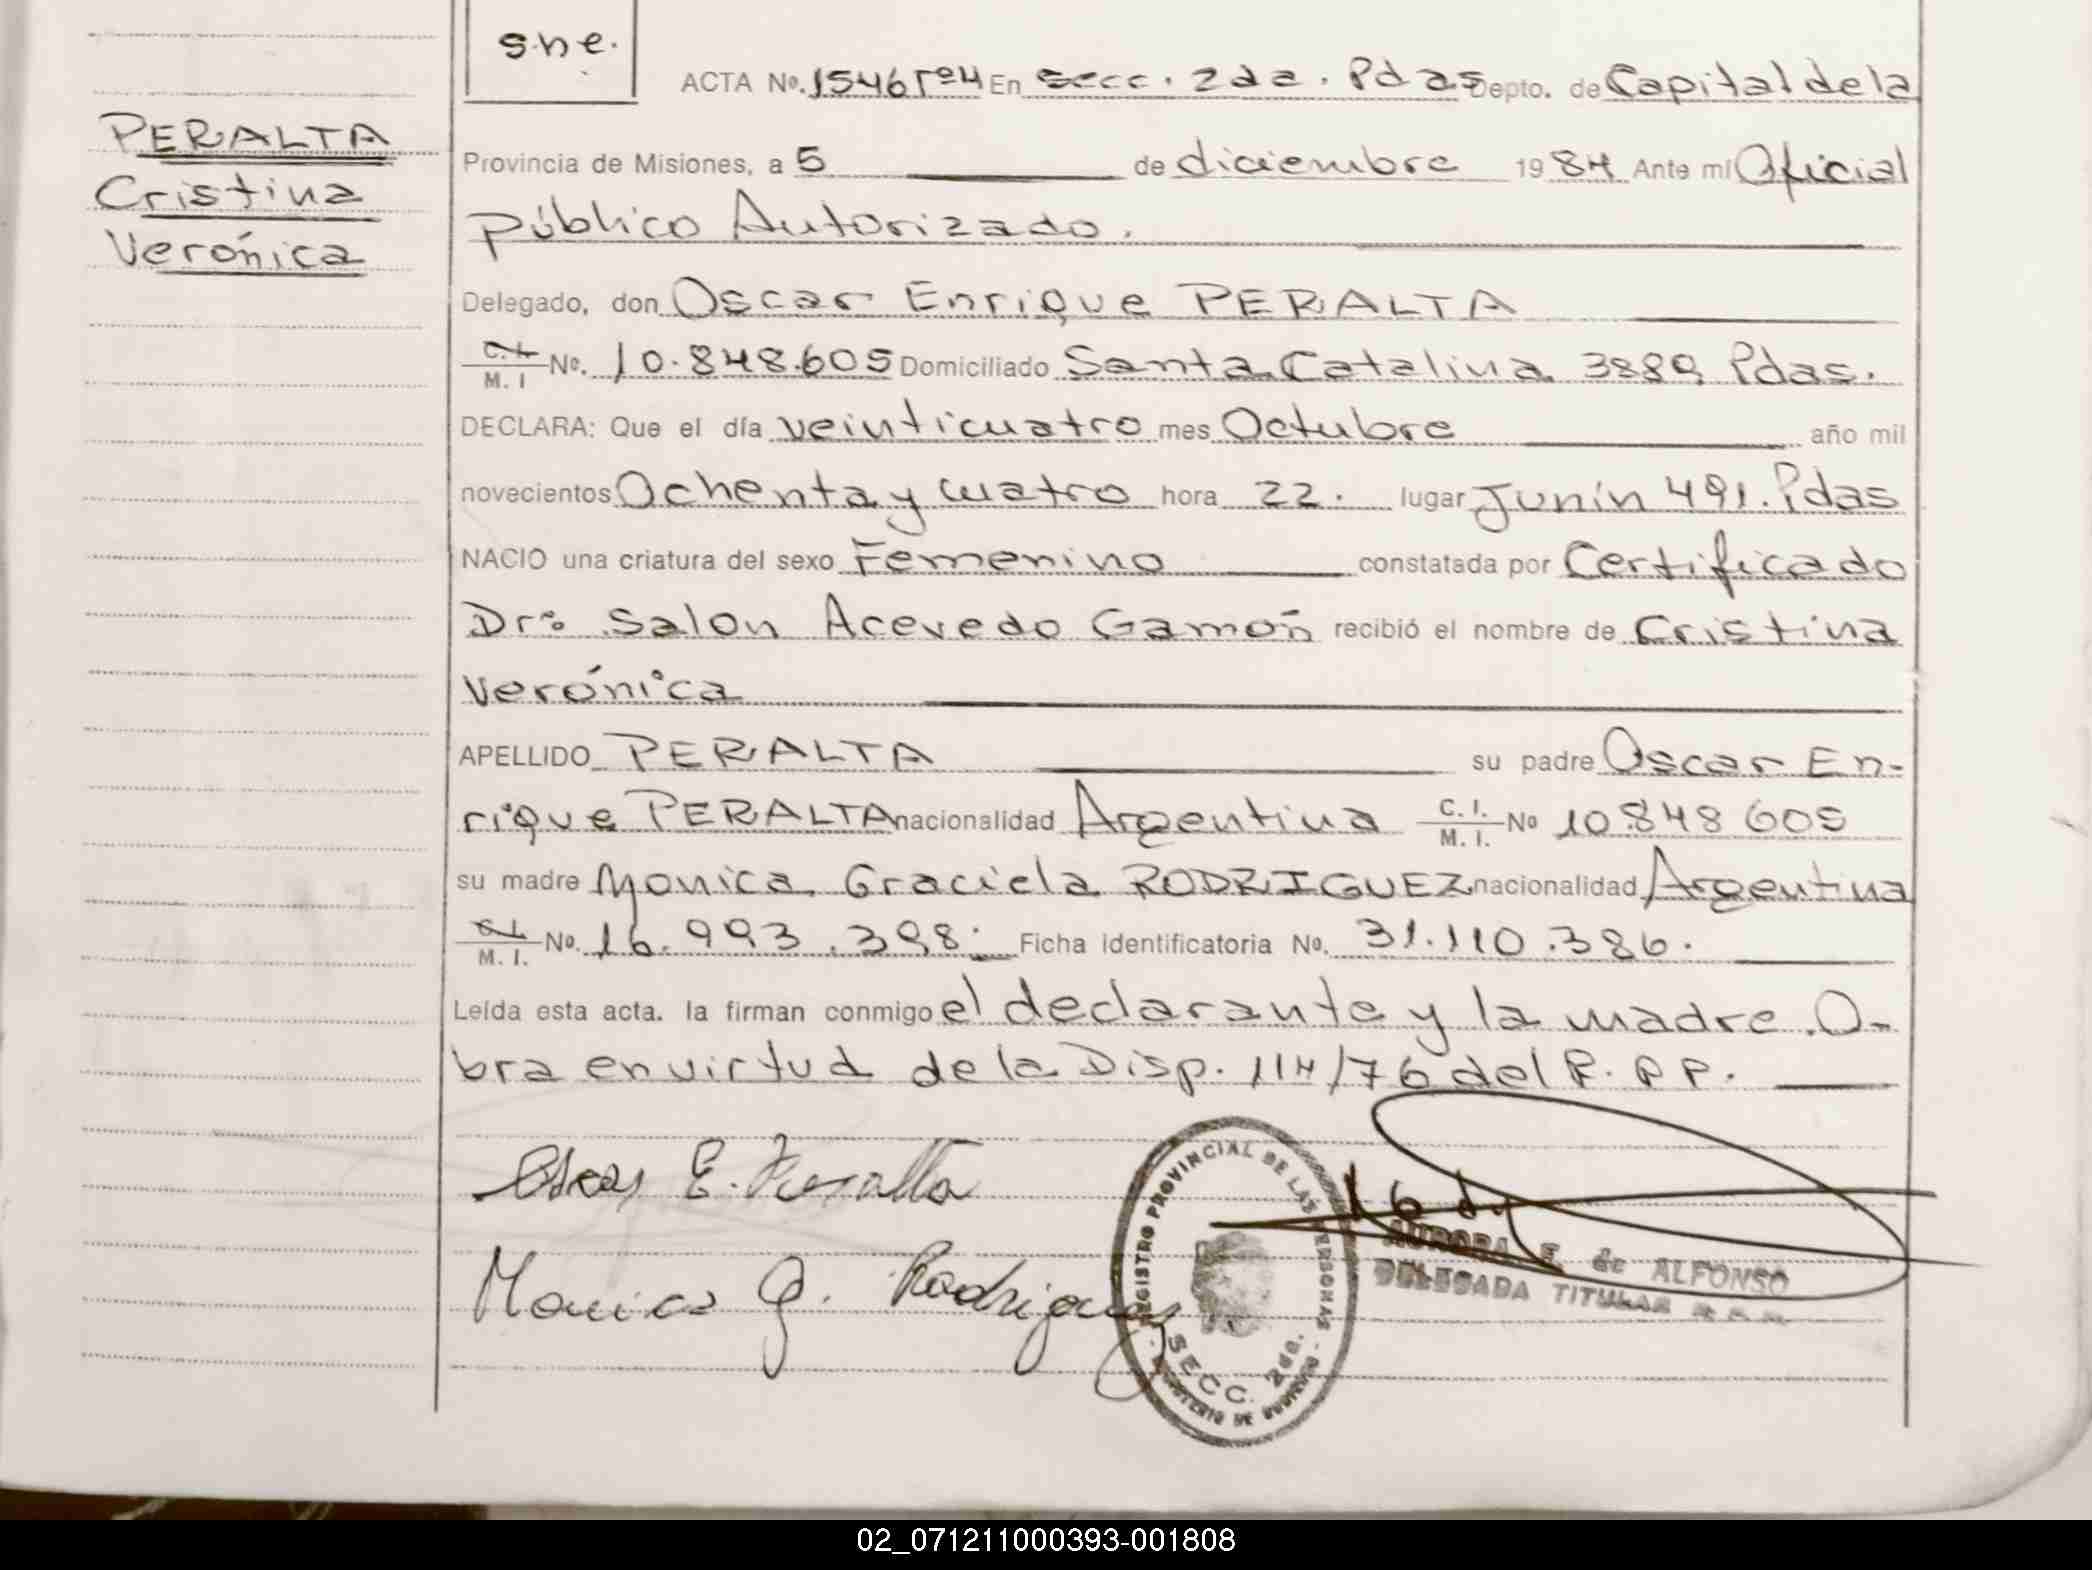 s.n.e.
ACTA Nº. 1546 Tº4 En secc. 2da. Pdas Depto. de Capital de la
PERALTA
Cristina
Verónica
Provincia de Misiones, a 5 de diciembre 1984 Ante mí Oficial
público Autorizado.
Delegado, don Oscar Enrique PERALTA
C.I. M.I Nº. 10.848.605 Domiciliado Santa Catalina 3889 Pdas.
DECLARA: Que el día veinticuatro mes Octubre año mil
novecientos Ochenta y cuatro hora 22. lugar Junín 491. Pdas
NACIO una criatura del sexo Femenino constatada por Certificado
Dr: Salon Acevedo Gamón recibió el nombre de Cristina
Verónica
APELLIDO PERALTA su padre Oscar En-
rique PERALTA nacionalidad Argentina C.I. M.I. Nº 10.848 605
su madre Monica Graciela RODRIGUEZ nacionalidad Argentina
C.I. M.I. Nº. 16.993.398. Ficha identificatoria Nº. 31.110.386.
Leída esta acta. la firman conmigo el declarante y la madre. O-
bra en virtud de la Disp. 114/76 del R. P P.
Oscar E. Peralta
Monica G. Rodriguez
REGISTRO PROVINCIAL DE LAS PERSONAS
SECC. 2da.
MINISTERIO DE GOBIERNO
AURORA E. de ALFONSO
DELEGADA TITULAR
02_071211000393-001808